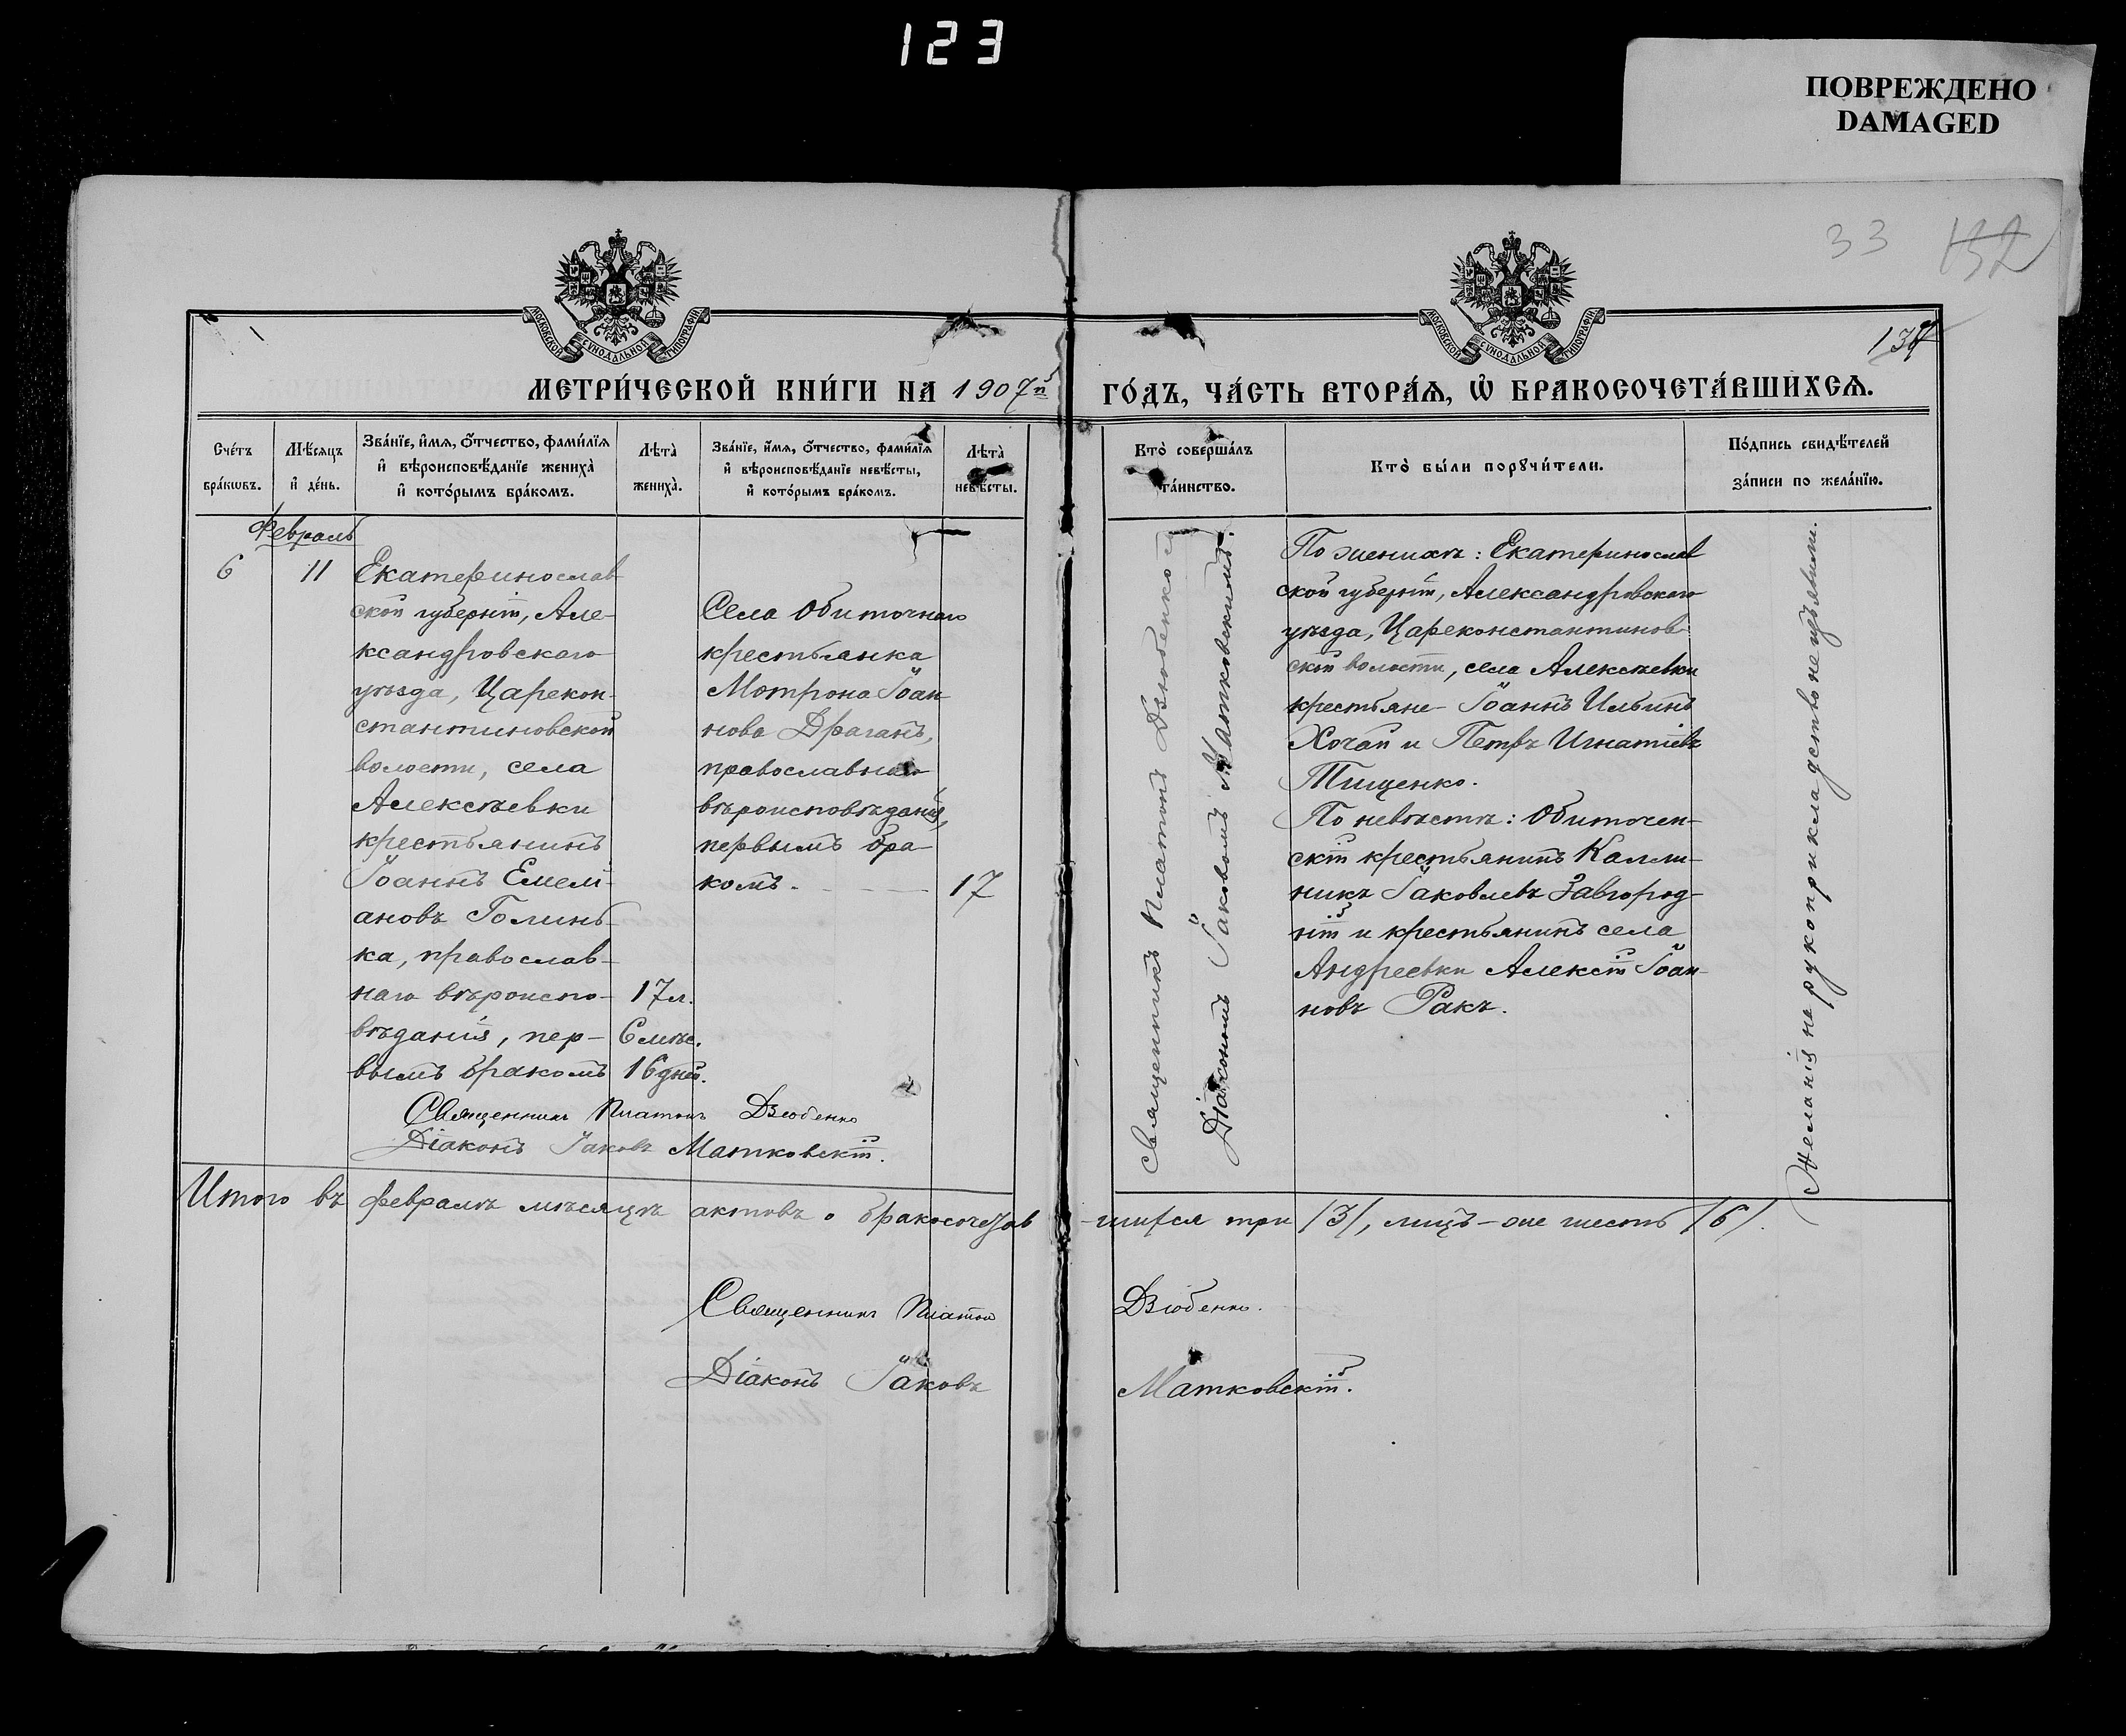 123
ПОВРЕЖДЕНО
DAMAGED
33 132
134
МОСКОВСКОЙ СѴНОДАЛЬНОЙ ТИПОГРАФІИ
МОСКОВСКОЙ СѴНОДАЛЬНОЙ ТИПОГРАФІИ
МЕТРИ́ЧЕСКОЙ КНИ́ГИ НА 1907й ГО́ДЪ, ЧА́СТЬ ВТОРА́Я, Ѡ҆ БРАКОСОЧЕТА́ВШИХСѦ.
Сче́тъ
бра́кѡвъ.
Мѣ́сяцъ
и҆ де́нь.
Зва́нїе, и҆́мя, ѻ҆́тчество, фами́лїя
и҆ вѣроисповѣ́данїе жениха̀
и҆ кото́рымъ бра́комъ.
Лѣта̀
жениха̀.
Зва́нїе, и҆́мя, ѻ҆́тчество, фами́лїя
и҆ вѣроисповѣ́данїе невѣ́сты,
и҆ кото́рымъ бра́комъ.
Лѣта̀
невѣ́сты.
Кто̀ соверша́лъ
та́инство.
Кто̀ бы́ли порꙋчи́тели.
По́дпись свидѣ́телей
за́писи по жела́нїю.
Февраль
6
11
Екатеринослав-
ской губерніи, Але-
ксандровскаго
уѣзда, Царекон-
стантиновской
волости, села
Алексѣевки
крестьянинъ
Іоаннъ Емелі-
ановъ Голинь-
ка, православ-
наго вѣроиспо-
вѣданія, пер-
вымъ бракомъ
17 л.
6 мѣс.
16 дней.
Села Обиточнаго
крестьянка
Мотрона Іоан-
нова Драганъ,
православнаго
вѣроисповѣданія,
первымъ бра-
комъ.
17
Священникъ Платонъ Дзюбенко
Діаконъ Іаковъ Матковскій.
Священникъ Платонъ Дзюбенко съ
Діакономъ Іаковомъ Матковскимъ.
По женихѣ: Екатеринослав
ской губерніи, Александровскаго
уѣзда, Цареконстантинов
ской волости, села Алексѣевки
крестьяне Іоаннъ Ильинъ
Хочай и Петръ Игнатіевъ
Тищенко.
По невѣстѣ: Обиточен-
скій крестьянинъ Калли-
никъ Іаковлевъ Завгород-
ній и крестьянинъ села
Андреевки Алексій Іоан-
новъ Ракъ.
Желанія на рукоприкладство не изъявили.
Итого въ февралѣ мѣсяцѣ актовъ о бракосочетав-шихся три /3/, лицъ-же шесть /6/.
Священникъ Платонъ Дзюбенко.
Діаконъ Іаковъ Матковскій.